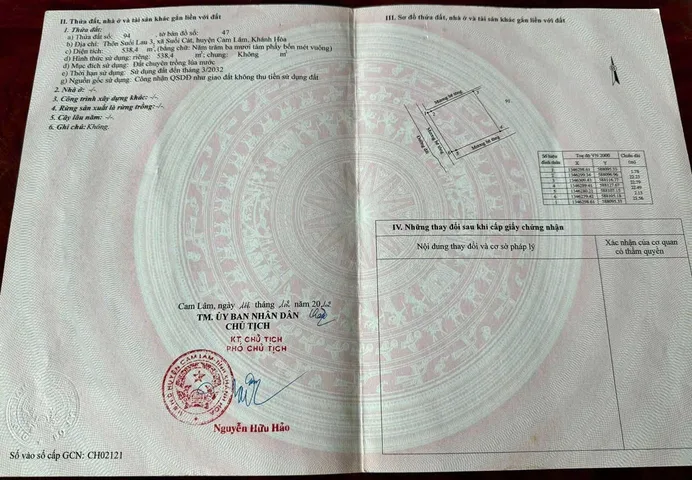 II. Thửa đất, nhà ở và tài sản khác gắn liền với đất
1. Thửa đất:
a) Thửa đất số: 94 , tờ bản đồ số: 47
b) Địa chỉ: Thôn Suối Lau 3, xã Suối Cát, huyện Cam Lâm, Khánh Hòa
c) Diện tích: 538,4 m², (bằng chữ: Năm trăm ba mươi tám phẩy bốn mét vuông)
d) Hình thức sử dụng: riêng: 538,4 m²; chung: Không m²
đ) Mục đích sử dụng: Đất chuyên trồng lúa nước
e) Thời hạn sử dụng: Sử dụng đất đến tháng 3/2032
g) Nguồn gốc sử dụng: Công nhận QSDĐ như giao đất không thu tiền sử dụng đất
2. Nhà ở: -/-
3. Công trình xây dựng khác: -/-
4. Rừng sản xuất là rừng trồng: -/-
5. Cây lâu năm: -/-
6. Ghi chú: Không.
Cam Lâm, ngày tháng 12 năm 2012
TM. ỦY BAN NHÂN DÂN
CHỦ TỊCH
KT. CHỦ TỊCH
PHÓ CHỦ TỊCH
U.B.N.D HUYỆN CAM LÂM-TỈNH KHÁNH HÒA
Nguyễn Hữu Hảo
Số vào sổ cấp GCN: CH02121
III. Sơ đồ thửa đất, nhà ở và tài sản khác gắn liền với đất
Mương bê tông
Mương bê tông
Đường đất
Mương bê tông
Số hiệu đỉnh thửa
Tọa độ VN 2000
Chiều dài (m)
X Y
IV. Những thay đổi sau khi cấp giấy chứng nhận
Nội dung thay đổi và cơ sở pháp lý
Xác nhận của cơ quan
có thẩm quyền